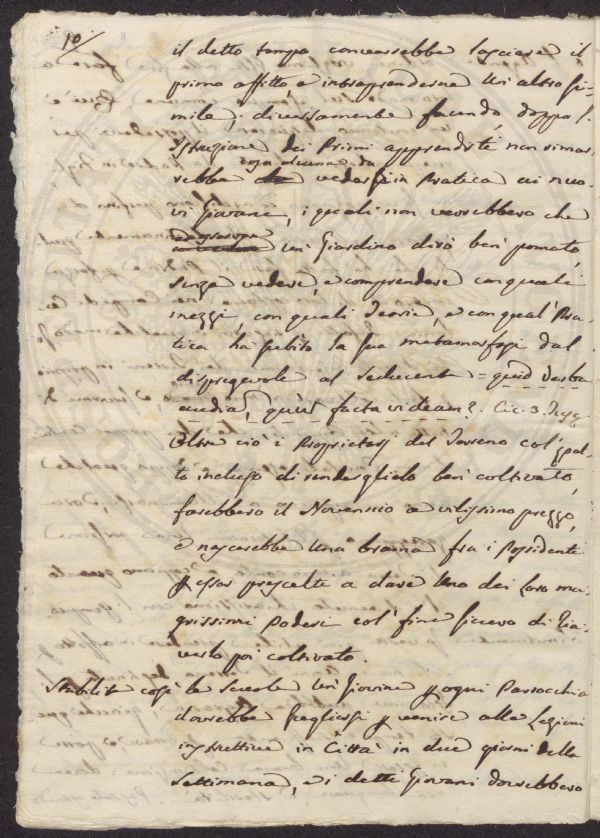 10/
il detto tempo converrebbe lasciare il
primo affitto, e intrapprenderne un altro si=
mile; diversamente facendo, doppo l'
Istruzione dei Primi apprendisti non rimar
cosa alcuna da
rebbe che vedersi in Pratica ai nuo=
vi Giovani, i quali non verrebbero che
un Giardino dirò ben pomato,
senza vedere, e comprendere con quali
mezzi, con quali Teorie, e con qual Pra=
tica ha subito la sua metamorfosi dal
dispregevole al seducente = quid verba
audia, quid facta videam? Cic. 3. Tusq.
Oltre ciò i Proprietarj del Terreno col pat=
to incluso di renderglielo ben coltivato,
farebbero il Novennio a vilissimo prezzo,
e nascerebbe una brama fra i Possidenti
p esser prescelti a dare uno dei loro ma=
grissimi Poderi col fine sicuro di ria=
verlo poi coltivato.
Stabilite così le Scuole un Giovine p ogni Parrocchia
dovrebbe scegliersi p venire alle Lezioni
instruttive in Città in due giorni della
Settimana, e i detti Giovani dovrebbero